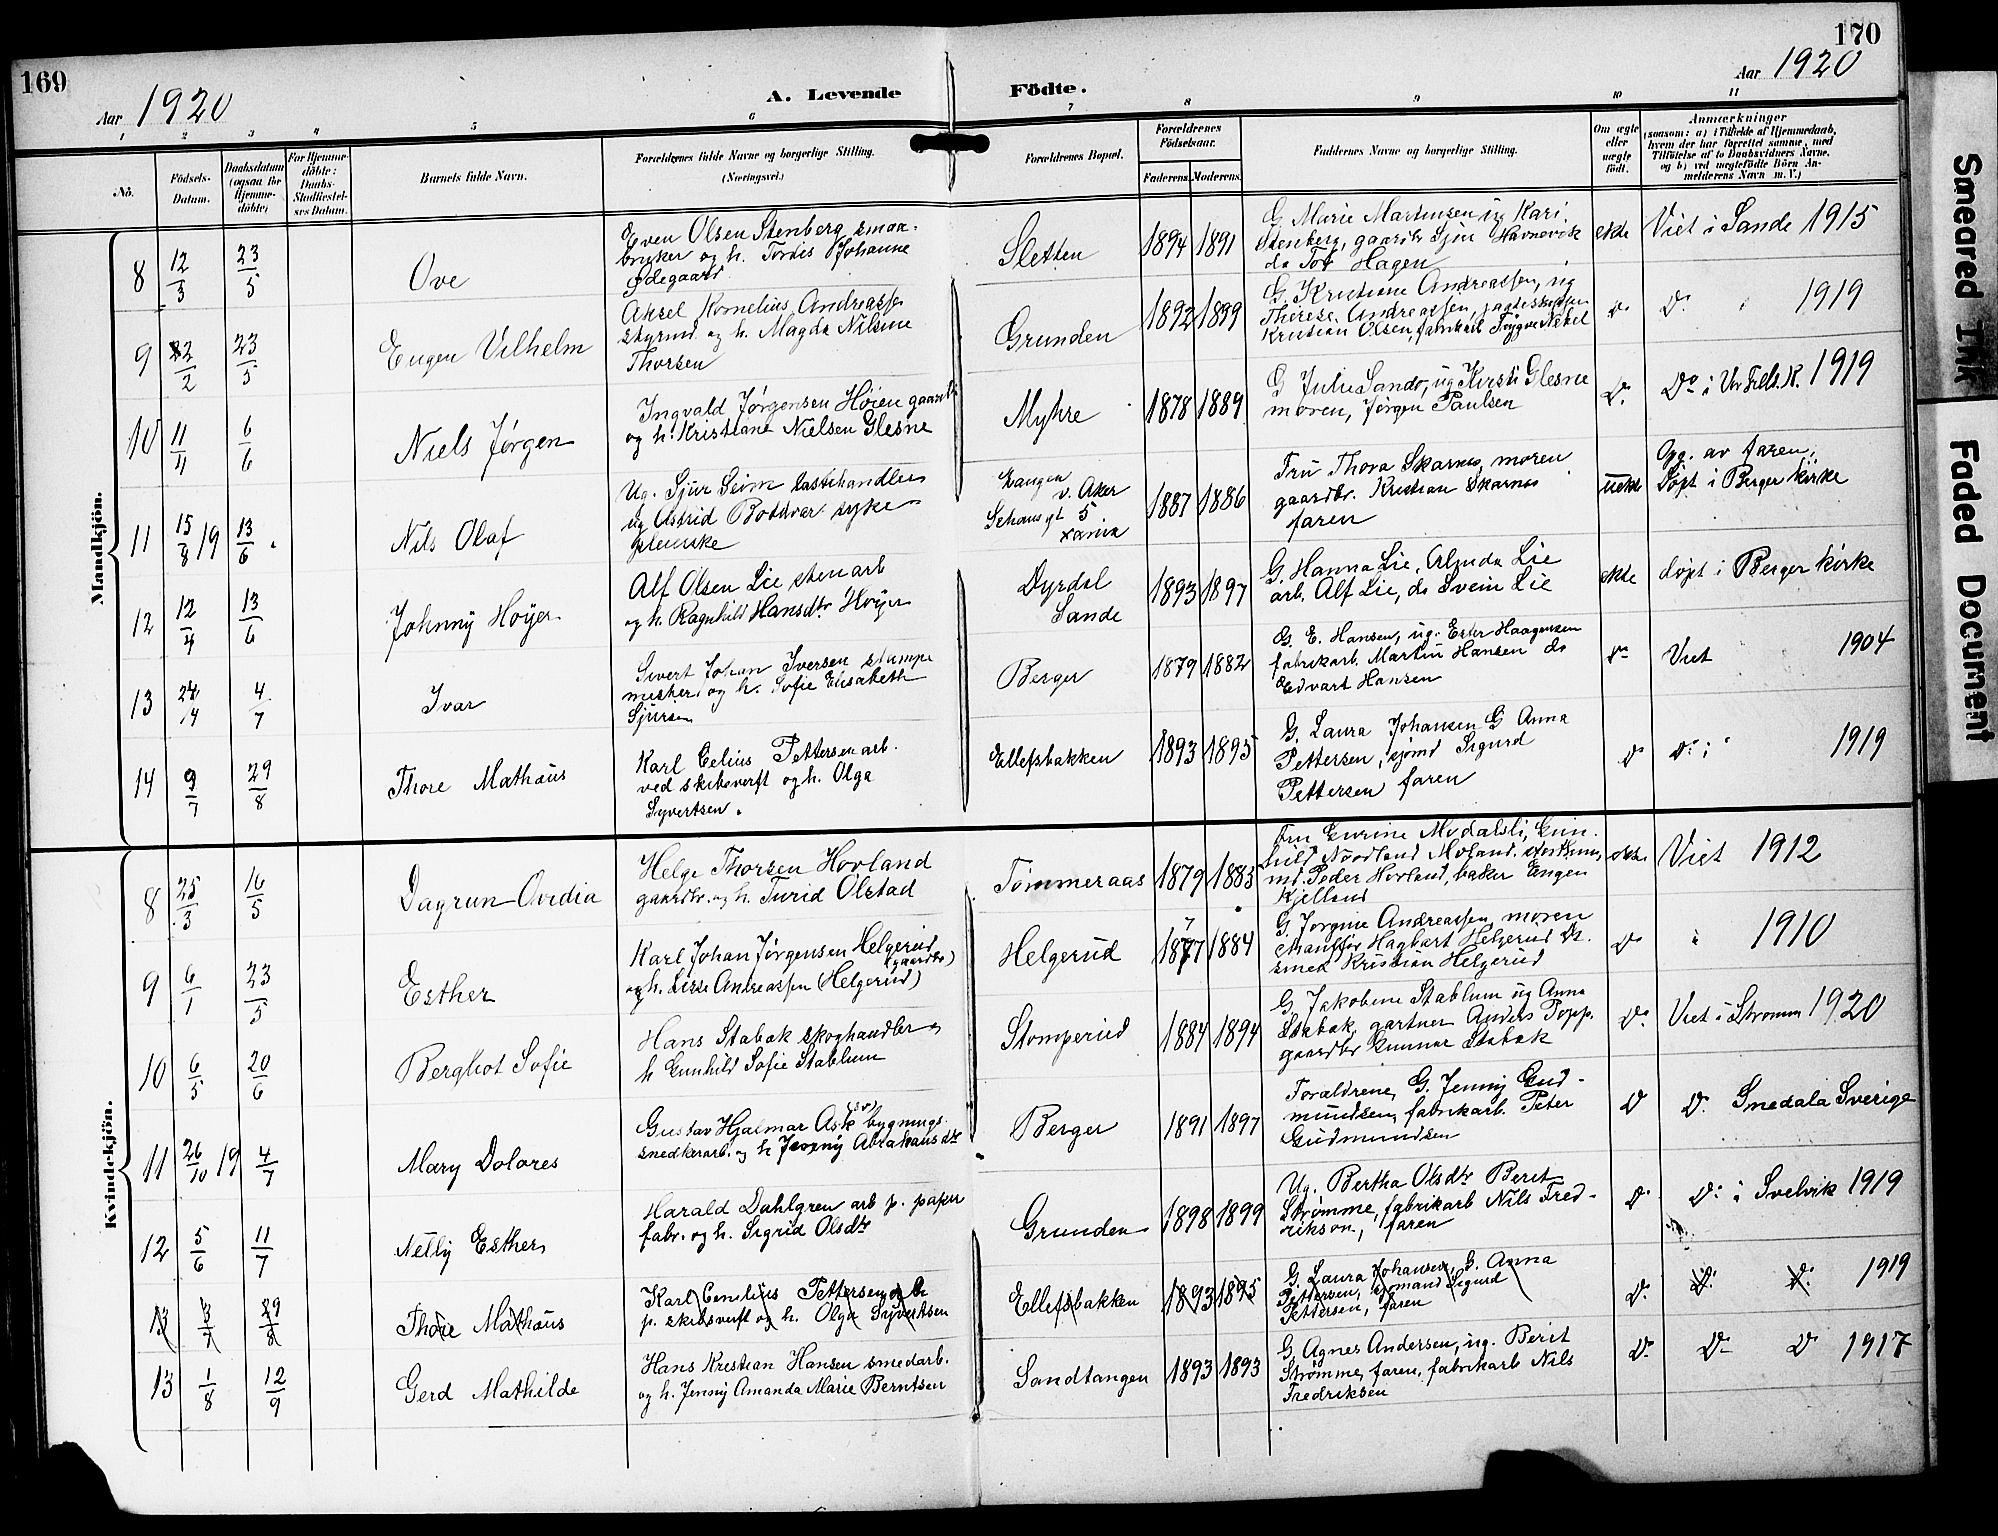 169
170
Aar 1920
A. Levende
Födte.
Aar 1920
1 2 3 4 5 6 7 8 9 10 11
No.
Födsels-
Datum.
Daabsdatum
(ogsaa for
Hjemme-
döbte)
For Hjemme-
döbte:
Daabs-
Stadfæstel-
ses Datum.
Barnets fulde Navn.
Forældrenes fulde Navne og borgerlige Stilling.
(Næringsvei.)
Forældrenes Bopæl.
Forældrenes
Födselsaar.
Faderens. Moderens.
Faddernes Navne og borgerlige Stilling.
Om ægte
eller
uægte
födt.
Anmærkninger
(saasom: a) i Tilfælde af Hjemmedaab,
hvem der har forrettet samme, med
Tilföielse af to Daabsvidners Navne,
og b) ved uægtefödte Börn An-
melderens Navn m. V.)
Mandkjön.
8 12/3 23/5 Ove
Even Olsen Stenberg smaa-
bruker og h. Tordis Johanne
Ødegaard
Sletten 1894 1891
G Marie Martinsen ug Kari
Stenberg, gaardbr Sjøn Havnevik
do Tor Hagen
ekte Viet i Sande 1915
9 22/2 23/5 Eugen Vilhelm
Aksel Kornelius Andreassen
styrmd og h. Magda Nilsine
Thorsen
Grunden 1892 1899
G. Kristiane Andreassen, ug
Therese Andreassen, jagteskipper
Kristian Olsen, fabrikarb Trygve Nebel
do Do 1919
10 11/4 6/6 Niels Jørgen
Ingvald Jørgensen Høien gaardbr
og h. Kristiane Nielsen Glesne
Myhre 1878 1889
G Julie Sando, ug Kirsti Glesne
moren, Jørgen Paulsen
Do Do i Vor Frels. K. 1919
11 15/8 19 13/6 Nils Olaf
Ug. Sjur Seim lastehandler
ug Astrid Boddvar syke
pleierske
Langen v. Aker
Schous gt 5
xania
1887 1886
Fru Thora Skarnes, moren
gaardbr. Kristian Skarnes
faren
uekte
Opg. av faren,
Døpt i Berger kirke
12 12/4 13/6 Johnny Høyer
Alf Olsen Lie stenarb
og h. Ragnhild Hansdtr Høyer
Dyrdal
Sande
1893 1897
G. Hanna Lie, Alvida Lie
arb. Alf Lie, do Svein Lie
ekte døpt i Berger kirke
13 24/4 4/7 Ivar
Sivert Johan Iversen stampe
mester og h. Sofie Elisabeth
Sjursen
Berger 1879 1882
G. E. Hansen, ug. Ester Haagensen
fabrikarb. Martin Hansen do
Edvart Hansen
do Viet 1904
14 9/7 29/8 Thore Mathæus
Karl Celius Pettersen arb.
ved skibsverft og h. Olga
Syvertsen.
Ellefsbakken 1893 1895
G. Laura Johansen G Anna
Pettersen, sjømd Sigurd
Pettersen faren
do do i 1919
Kvindekjön.
8 25/3 16/5 Dagrun Ovidia
Helge Thorsen Hovland
gaardbr. og h. Turid Olstad
Tømmeraas 1879 1883
Fru Gurine Modalsli, Gun-
hild Nordland
md. Peder Hovland, baker Eugen
Kjelland
ekte Viet 1912
9 6/1 23/5 Esther
Karl Johan Jørgensen Helgerud
(gaardbr)
og h. Lisse Andreassen (Helgerud)
Helgerud 1877 7 1884
G. Jørgine Andreassen, moren
Hagbart Helgerud Dr.
smed Kristian Helgerud
do 1910
10 6/5 20/6 Bergliot Sofie
Hans Stabæk skoghandler og
h Gunhild Sofie Stablum
Stomperud 1884 1894
G Jakobine Stablum ug Anna
Stabæk, gartner Anders Topp.
gaardbr Gunnar Stabæk
do Viet i Strømm 1920
11 26/10 19 4/7 Mary Dolores
Gustav Hjalmar Ask (sv) bygnings
snedkerarb. og h Jenny Abrahamsdtr
Berger 1891 1897
Forældrene, G. Jenny Gud-
mundsen, fabrikarb. Peter
Gudmundsen
do Do Smedala Sverige
12 5/6 11/7 Nelly Esther
Harald Dahlgren arb p. papir
fabr. og h. Sigrid Olsdtr
Grunden 1898 1899
Ug. Bertha Olsdtr Berit
Strømme, fabrikarb Nils Fred-
rikson, faren
do Do i Svelvik 1919
13 3/7 29/8 Thore Mathæus
Karl Cenelius Pettersen arb
p. skibsverft og h. Olga Syvertsen
Ellefsbakken 1893 1895
G. Laura Johansen, G. Anna
Pettersen, sjømand Sigurd
Pettersen, faren
do Do Do 1919
13 1/8 12/9 Gerd Mathilde
Hans Kristian Hansen smedarb.
og h. Jenny Amanda Marie Berntsen
Sandtangen 1893 1893
G. Agnes Andersen, ug. Berit
Strømme, faren, fabrikarb Nils
Fredriksen
do Do Do 1917
Smeared Ink
Faded Document